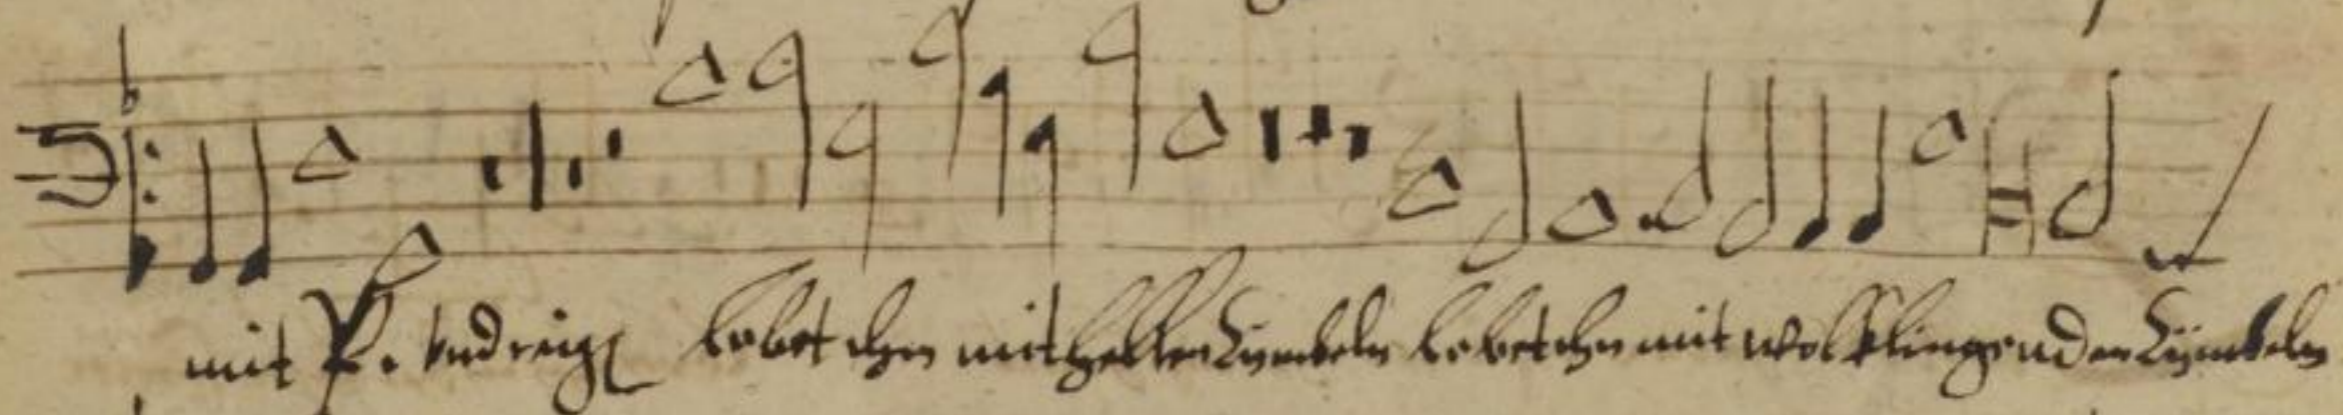 mit Pf. Vnd reig lobet ihn mit hellen Cymbeln lobet ihn mit wolklingenden Cymbeln